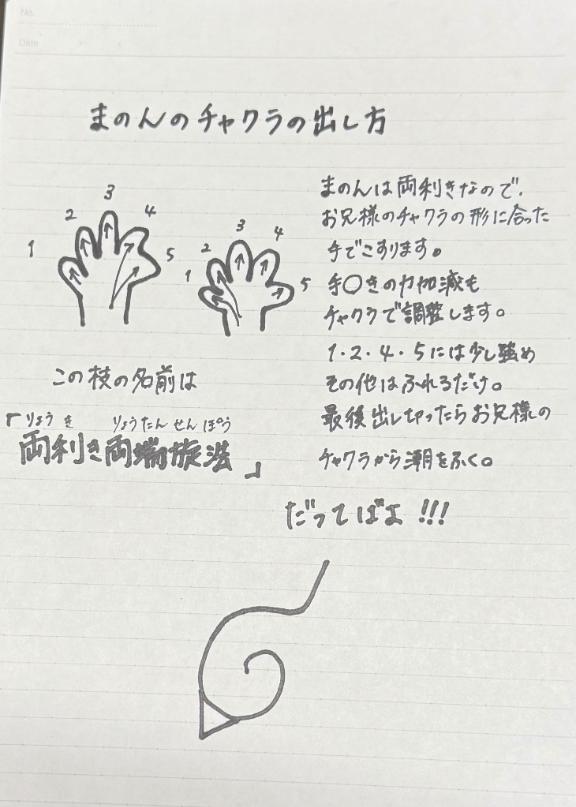 No.
Date
まのんのチャクラの出し方
1 2 3 4 5
1 2 3 4 5
まのんは両利きなので、
お兄様のチャクラの形に合った
手でこすります。
手〇きの力加減も
チャクラで調整します。
1・2・4・5には少し強め
その他はふれるだけ。
最後出し切ったらお兄様の
チャクラから潮をふく。
この技の名前は
りょう き りょうたん せん ぽう
『両利き両端旋法』
だってばよ!!!